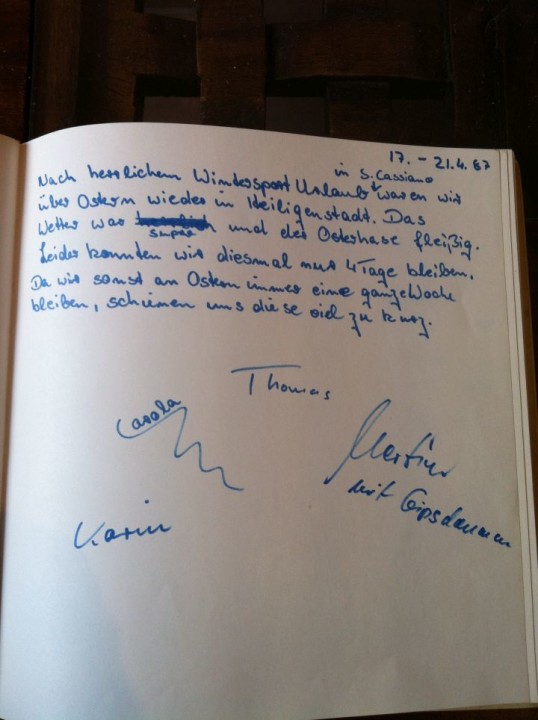 17. - 21.4.87
in S. Cassiano
Nach herrlichem Windersport Urlaub waren wir
über Ostern wieder in Heiligenstadt. Das
Wetter war herrlich und der Osterhase fleißig.
super
Leider konnten wir diesmal nur 4 Tage bleiben.
Da wir sonst an Ostern immer eine ganze Woche
bleiben, schienen uns diese viel zu kurz.
Thomas
Carola
Martin
mit Gipsdaumen
Karin